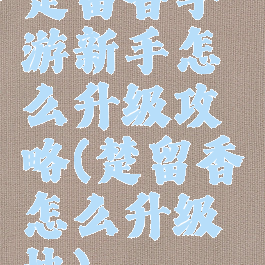 楚留香手
游新手怎
么升级攻
略(楚留香
怎么升级
快)